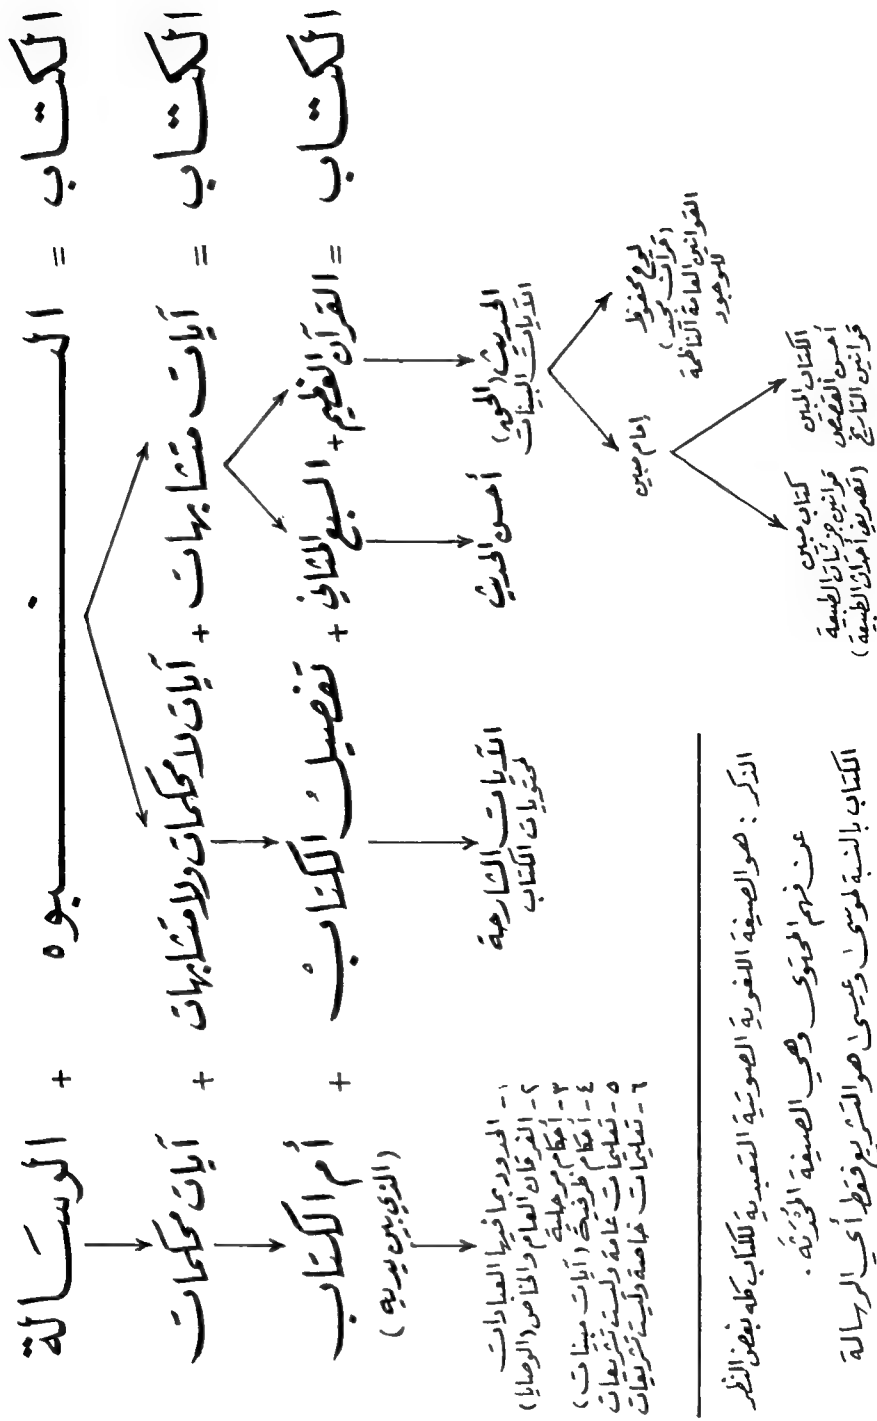 الكتاب = النبوه + الرسالة
الكتاب = آيات متشابهات + آيات لا محكمات ولا متشابهات + آيات محكمات
الكتاب = القرآن العظيم + السبع المثاني + تفصيلُ الكتابْ + أم الكتاب
(الذي بين يديه)
الحديث (الحق)
الآيات البينات
أحسن الحديث
الآيات الشارحة
لمحتويات الكتاب
١- الحدود بما فيها العبادات
٢- الفرقان العام والخاص (الوصايا)
٣- أحكام مرحلية
٤- أحكام ظرفية (آيات مبينات)
٥- تعليمات عامة وليست تشريعات
٦- تعليمات خاصة وليست تشريعات
لوح محفوظ
(قرآن مجيد)
القوانين العامة الناظمة
للوجود
إمام مبين
الكتاب المبين
أحسن القصص
قوانين التاريخ
كتاب مبين
قوانين جزئيات الطبيعة
(تصريف أحداث الطبيعة)
الذكر : هو الصيغة اللغوية الصوتية التعبدية للكتاب كله بغض النظر
عن فهم المحتوى وهي الصيغة المُحْدَثَة .
الكتاب بالنسبة لموسى وعيسى هو التشريع فقط أي الرسالة